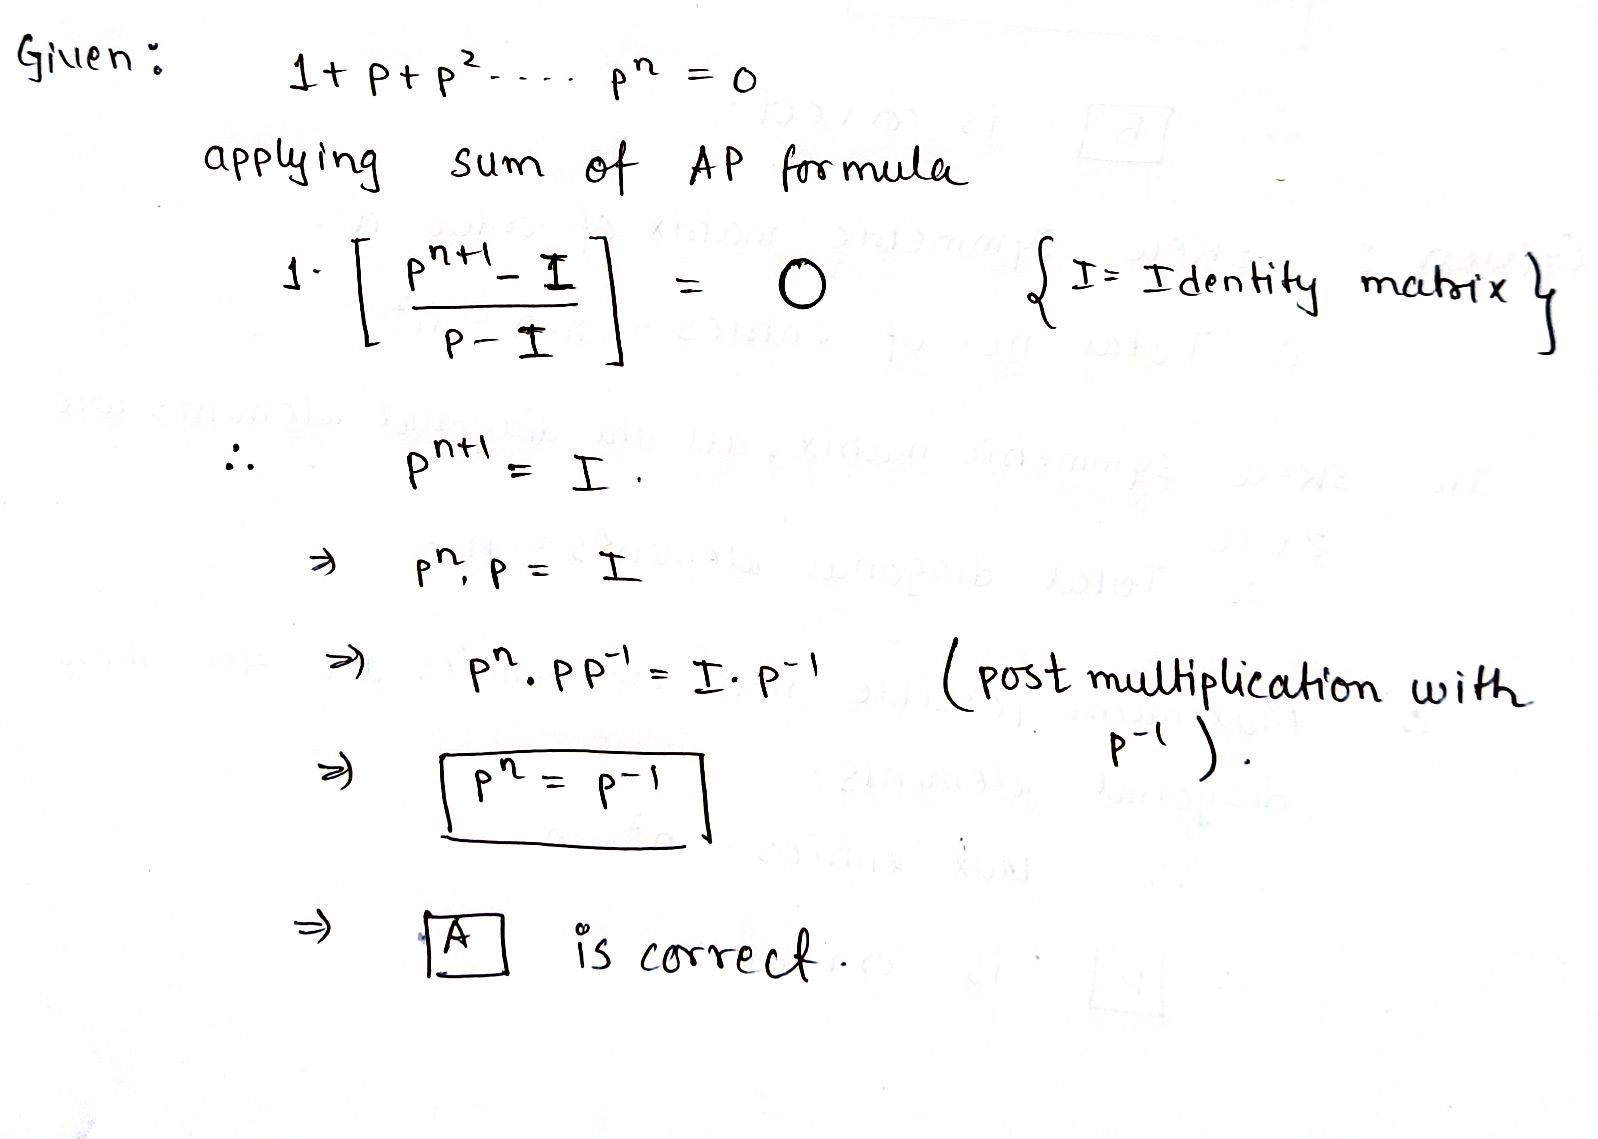 Given: 1 + p + p² - . . . . pⁿ = 0
applying sum of AP formula
1. [ (pⁿ⁺¹ - I) / (p - I) ] = O { I = Identity matrix }
∴ pⁿ⁺¹ = I .
⇒ pⁿ. p = I
⇒ pⁿ. p p⁻¹ = I. p⁻¹ (post multiplication with
p⁻¹).
⇒ pⁿ = p⁻¹
⇒ A is correct.